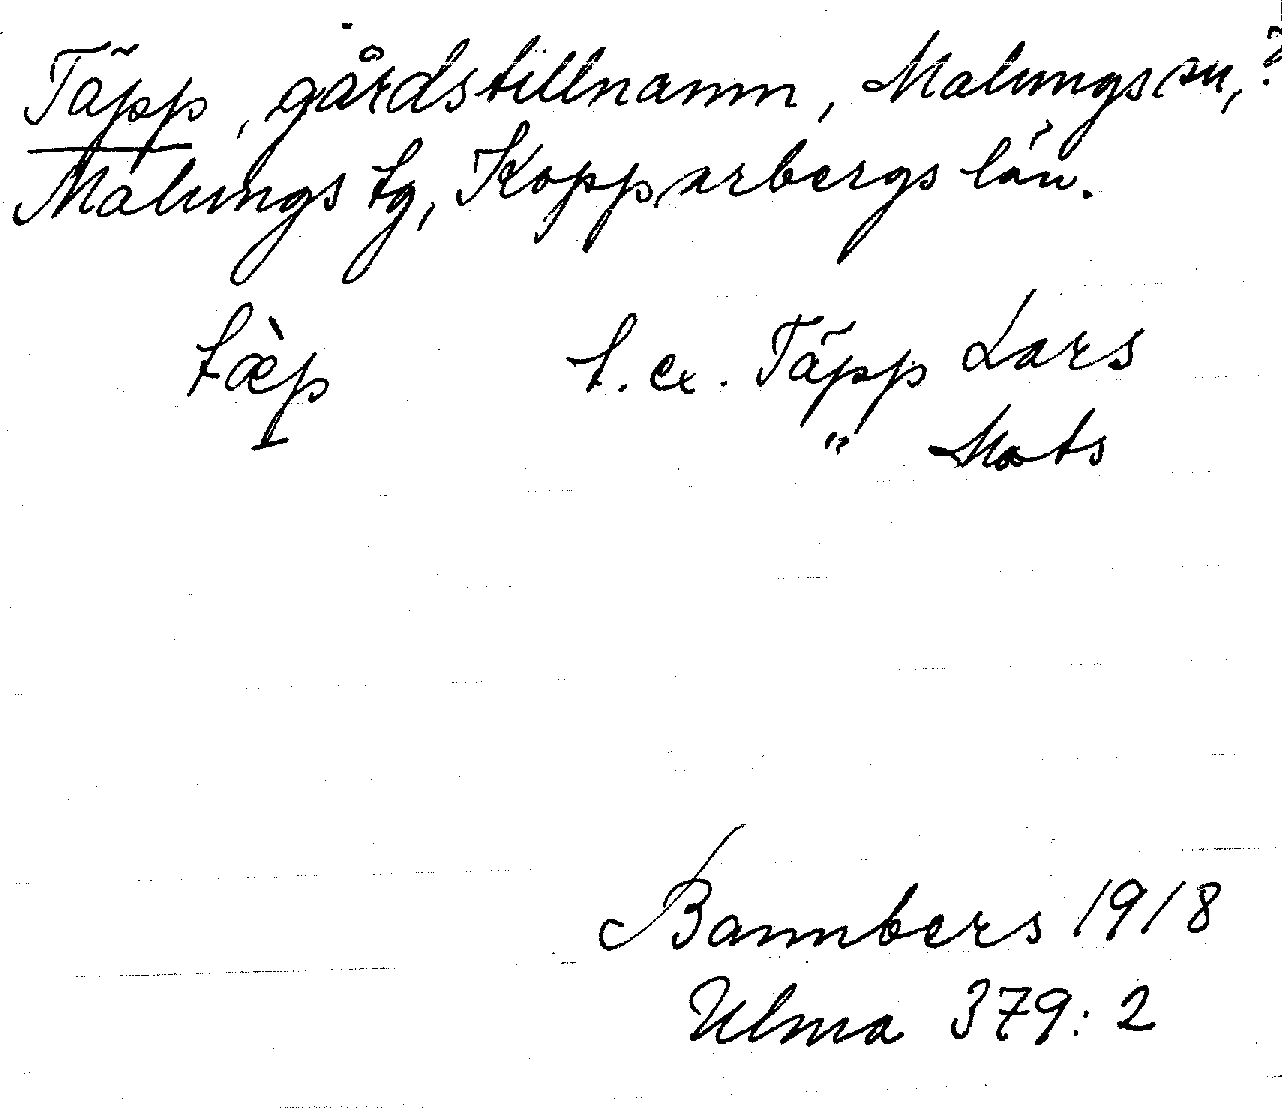 Täpp, gårdstillnamn, Malungs sn, ?
Malungs tg, Kopparbergs län.
tæ̀p t. ex. Täpp Lars
" Mats
Bannbers 1918
Ulma 379:2